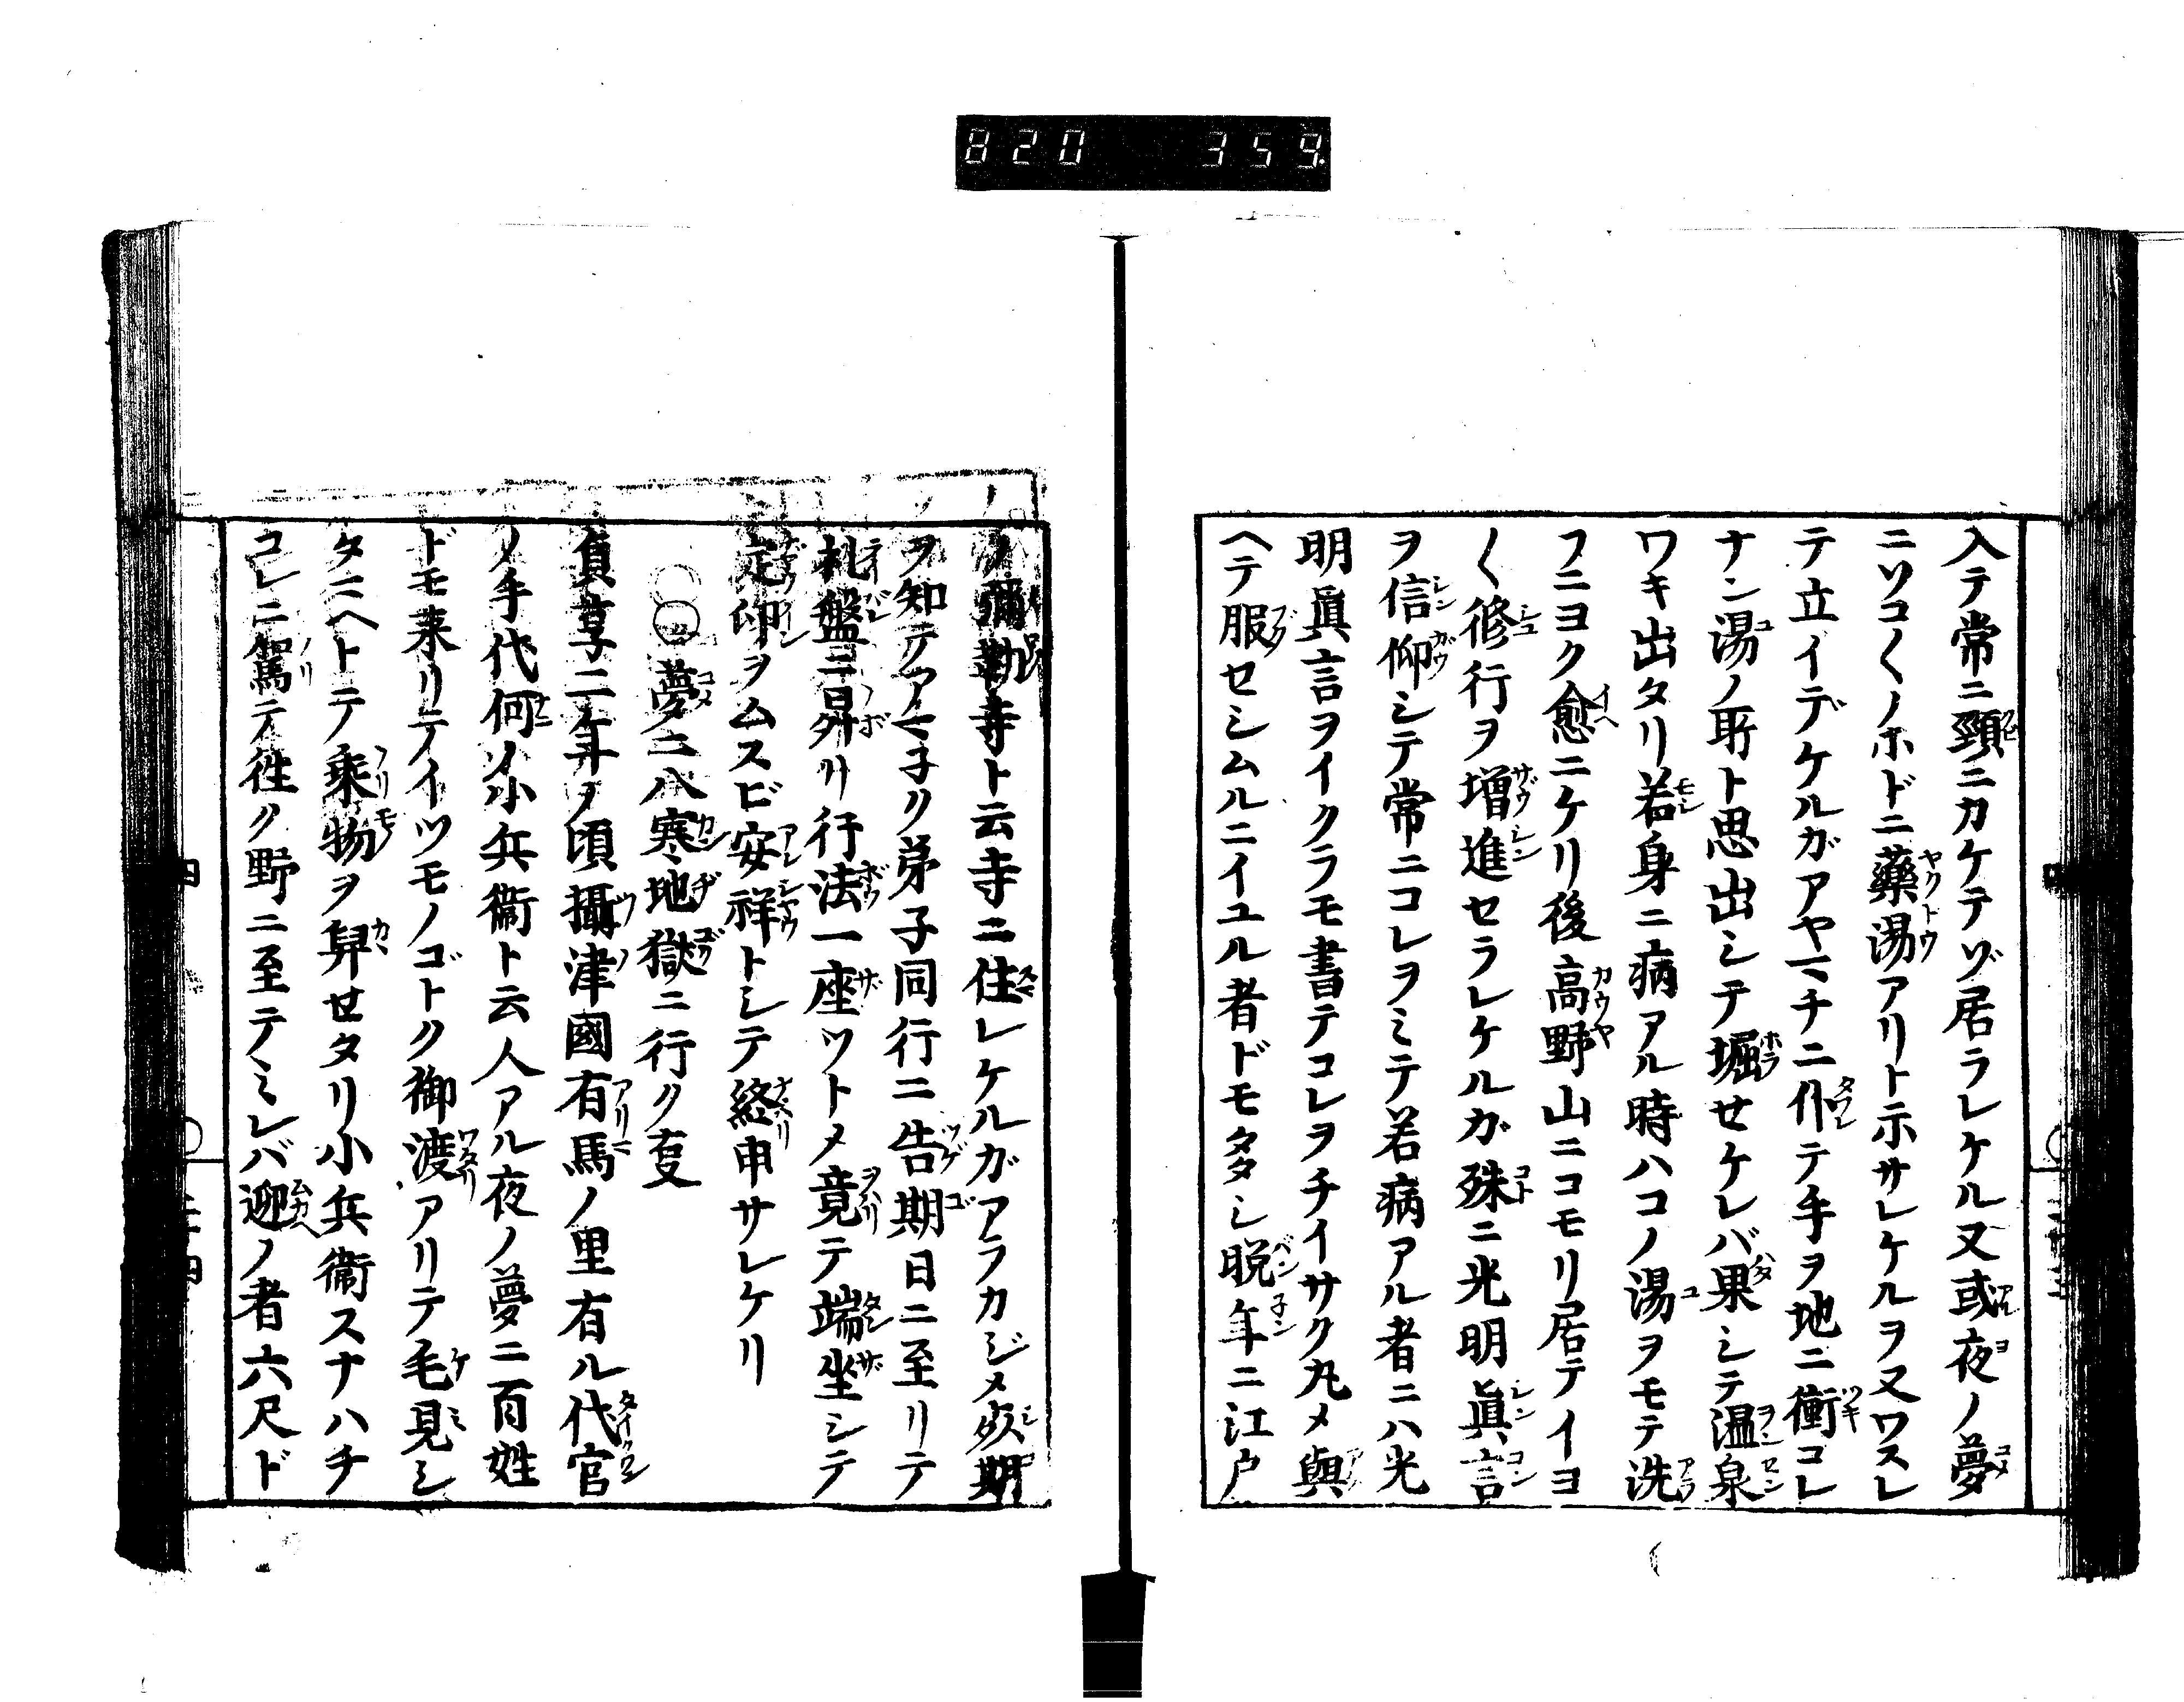 820 359
入テ常ニ頸ニカケテゾ居ラレケル又或夜ノ夢
ニソコ〱ノホドニ藥湯アリト示サレケルヲ又ワスレ
テ立イデケルガアヤマチニ仆テ手ヲ地ニ衝コレ
ナン湯ノ所ト思出シテ堀せケレバ果シテ温泉
ワキ出タリ若身ニ病アル時ハコノ湯ヲモテ洗
フニヨク愈ニケリ後高野山ニコモリ居テイヨ
〱修行ヲ增進セラレケルガ殊ニ光明眞言
ヲ信仰シテ常ニコレヲミテ若病アル者ニハ光
明眞言ヲイクラモ書テコレヲチイサク丸メ與
ヘテ服セシムルニイユル者ドモ多タシ脱年ニ江戸
ノ彌勒寺ト云寺ニ住レケルガアラカジメ死期
ヲ知テアマ子ク弟子同行ニ告期日ニ至リテ
札盤ニ昇リ行法一座ツトメ竟テ端坐シテ
定印ヲムスビ安祥トシテ終申サレケリ
○夢ニ八寒地獄ニ行ク叓
貞享二年ノ頃攝津國有馬ノ里有ル代官
ノ手代何ソ小兵衞ト云人アル夜ノ夢ニ百姓
ドモ来リテイツモノゴトク御渡アリテ毛見シ
タニヘトテ乘物ヲ舁せタリ小兵衞スナハチ
コレニ駕テ徃ク野ニ至テミレバ迎ノ者六尺ド